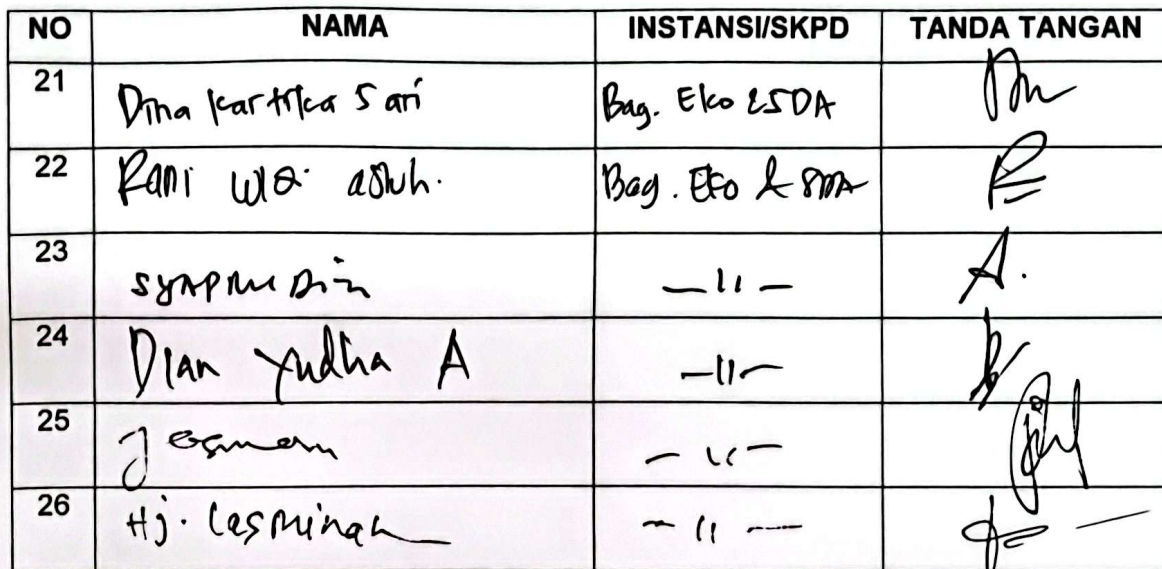 NO NAMA INSTANSI/SKPD TANDA TANGAN
21 Dina Kartika Sari Bag. Eko & SDA
22 Rani astuti. Bag. Eko & SDA
23 Syaprudin — 11 — A.
24 Dian Yudha A — 11 —
25 — 11 —
26 Hj. Lasminah — 11 —